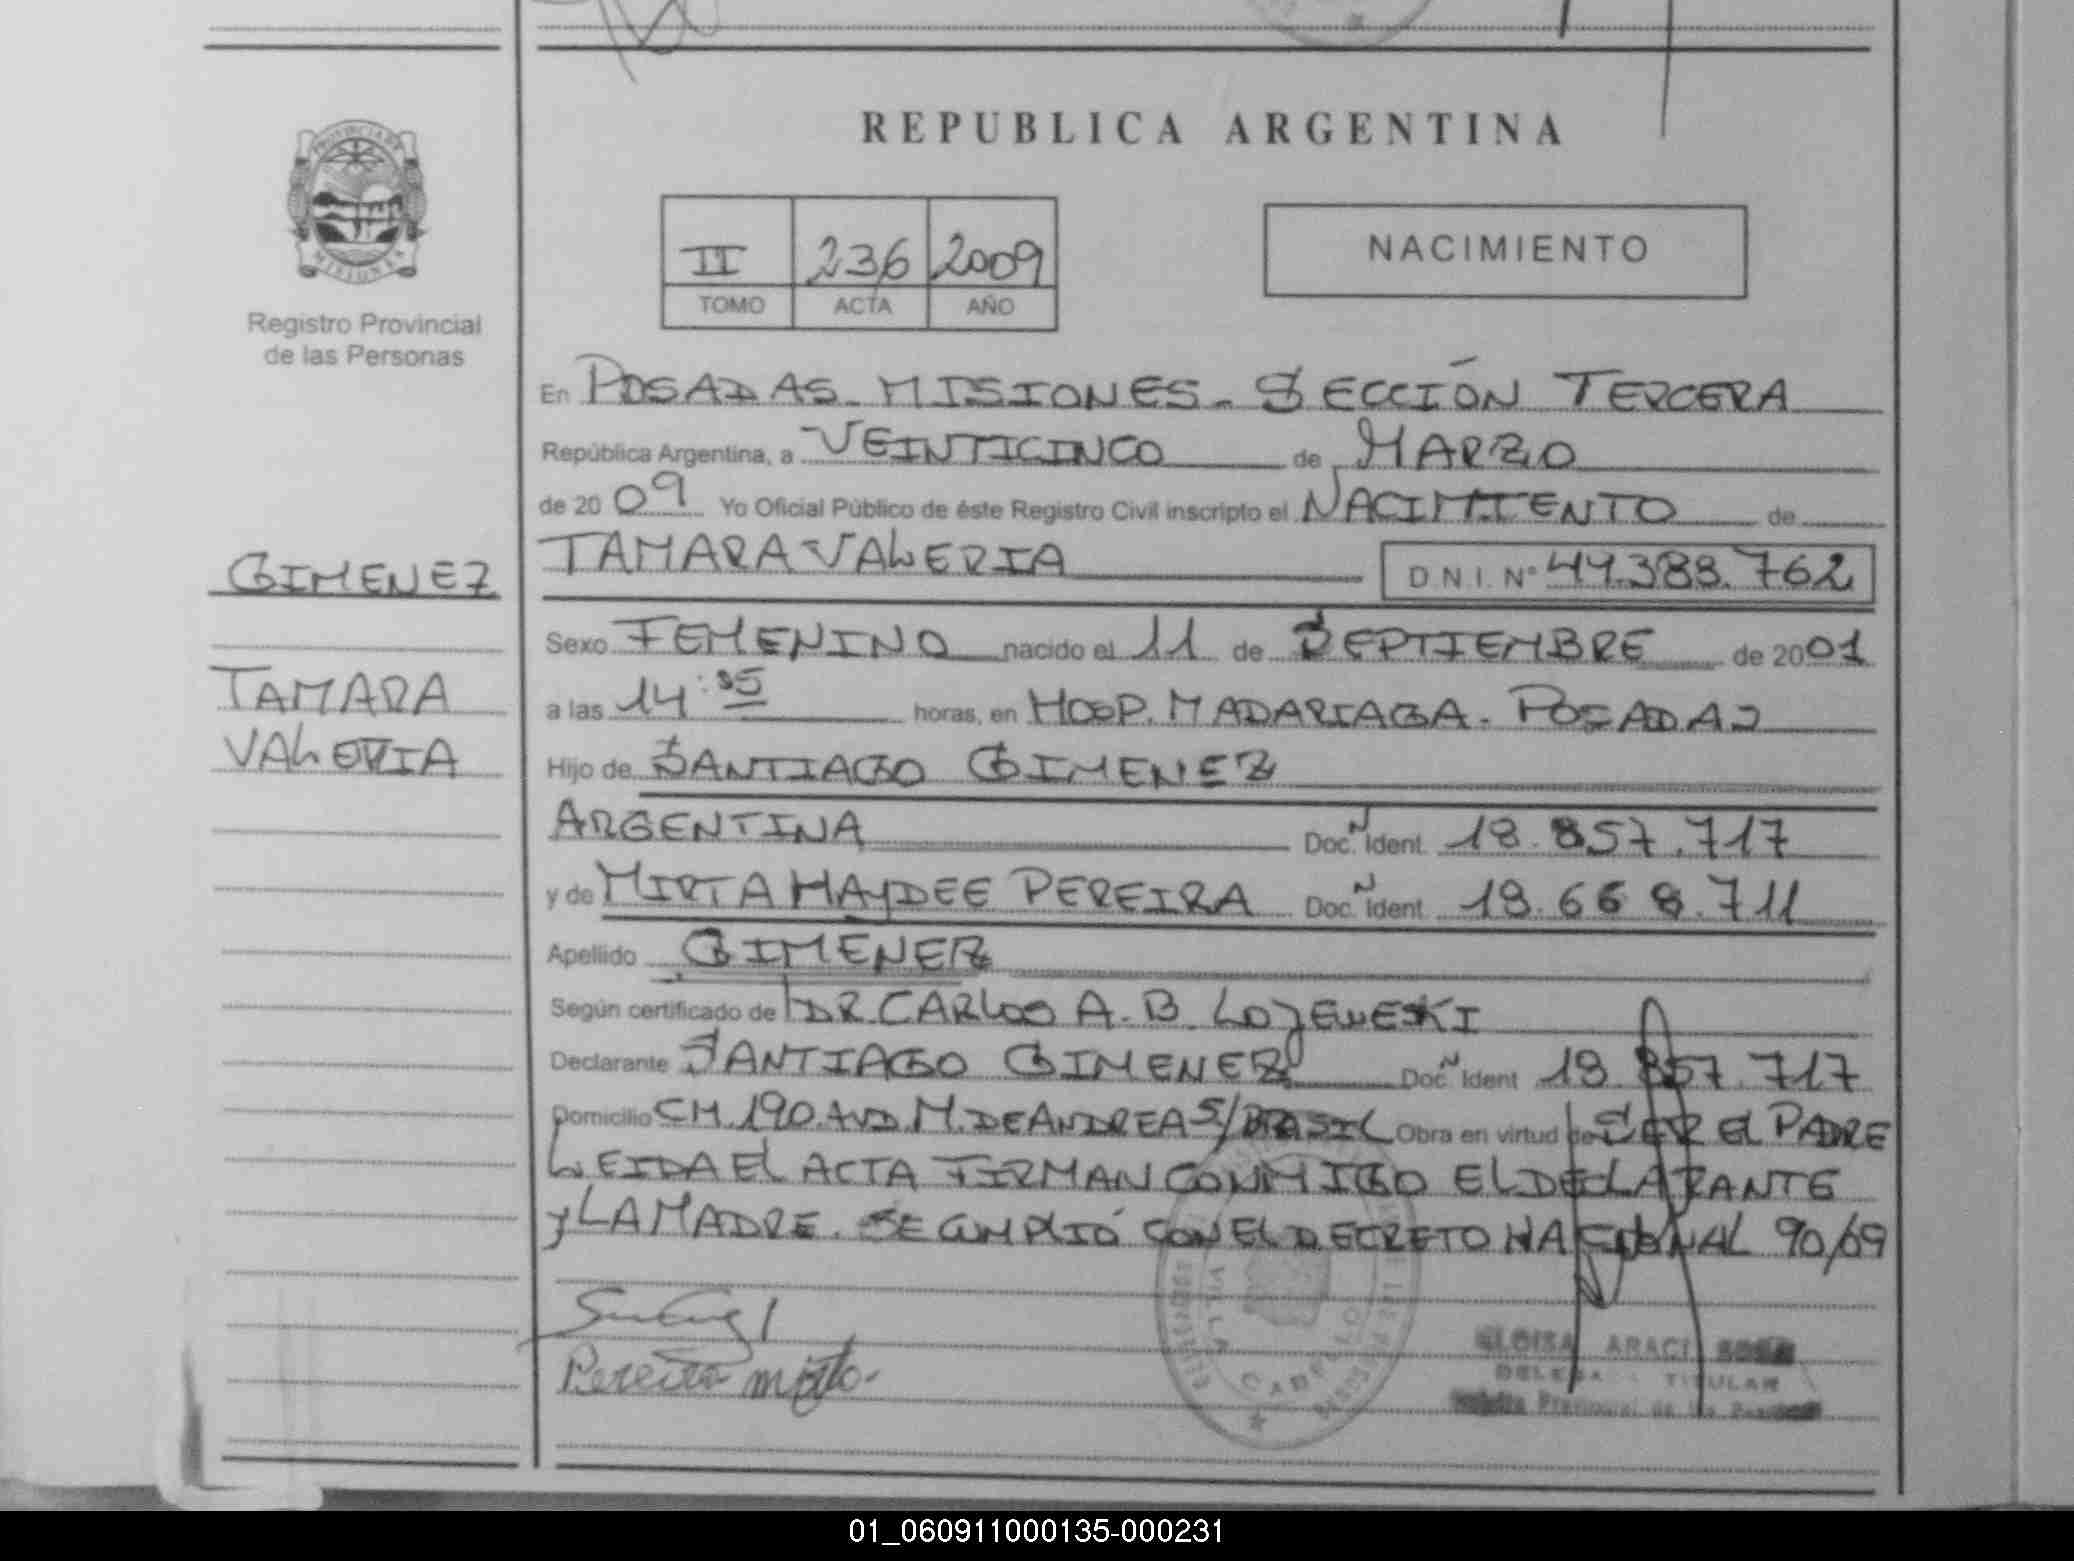 REPUBLICA ARGENTINA
PROVINCIA DE
MISIONES
Registro Provincial
de las Personas
II 236 2009
TOMO ACTA AÑO
NACIMIENTO
En POSADAS - MISIONES - SECCIÓN TERCERA
República Argentina, a VEINTICINCO de MARZO
de 2009 Yo Oficial Público de éste Registro Civil inscripto el NACIMIENTO de
TAMARA VALERIA D.N.I. Nº 44.388.762
GIMENEZ
TAMARA
VALERIA
Sexo FEMENINO nacido el 11 de SEPTIEMBRE de 2001
a las 14: horas, en HOSP. MADARIAGA - POSADAS
Hijo de SANTIAGO GIMENEZ
ARGENTINA Doc. N Ident. 18.857.717
y de MIRTA HAYDEE PEREIRA Doc. N Ident. 18.668.711
Apellido GIMENEZ
Según certificado de DR CARLOS A. B. LOJEWESKI
Declarante SANTIAGO GIMENEZ Doc. N Ident 18.857.717
Domicilio CH. 190. AVD. M. DE ANDREA S/BRASIL Obra en virtud de SER EL PADRE
LEIDA EL ACTA FIRMAN CONMIGO EL DECLARANTE
y LA MADRE. SE CUMPLIÓ CON EL DECRETO NACIONAL 90/09
Pereira mirta.
VILLA CABELLO
ELOISA ARACI SOSA
DELEGADA TITULAR
Provincial de las Personas
01_060911000135-000231